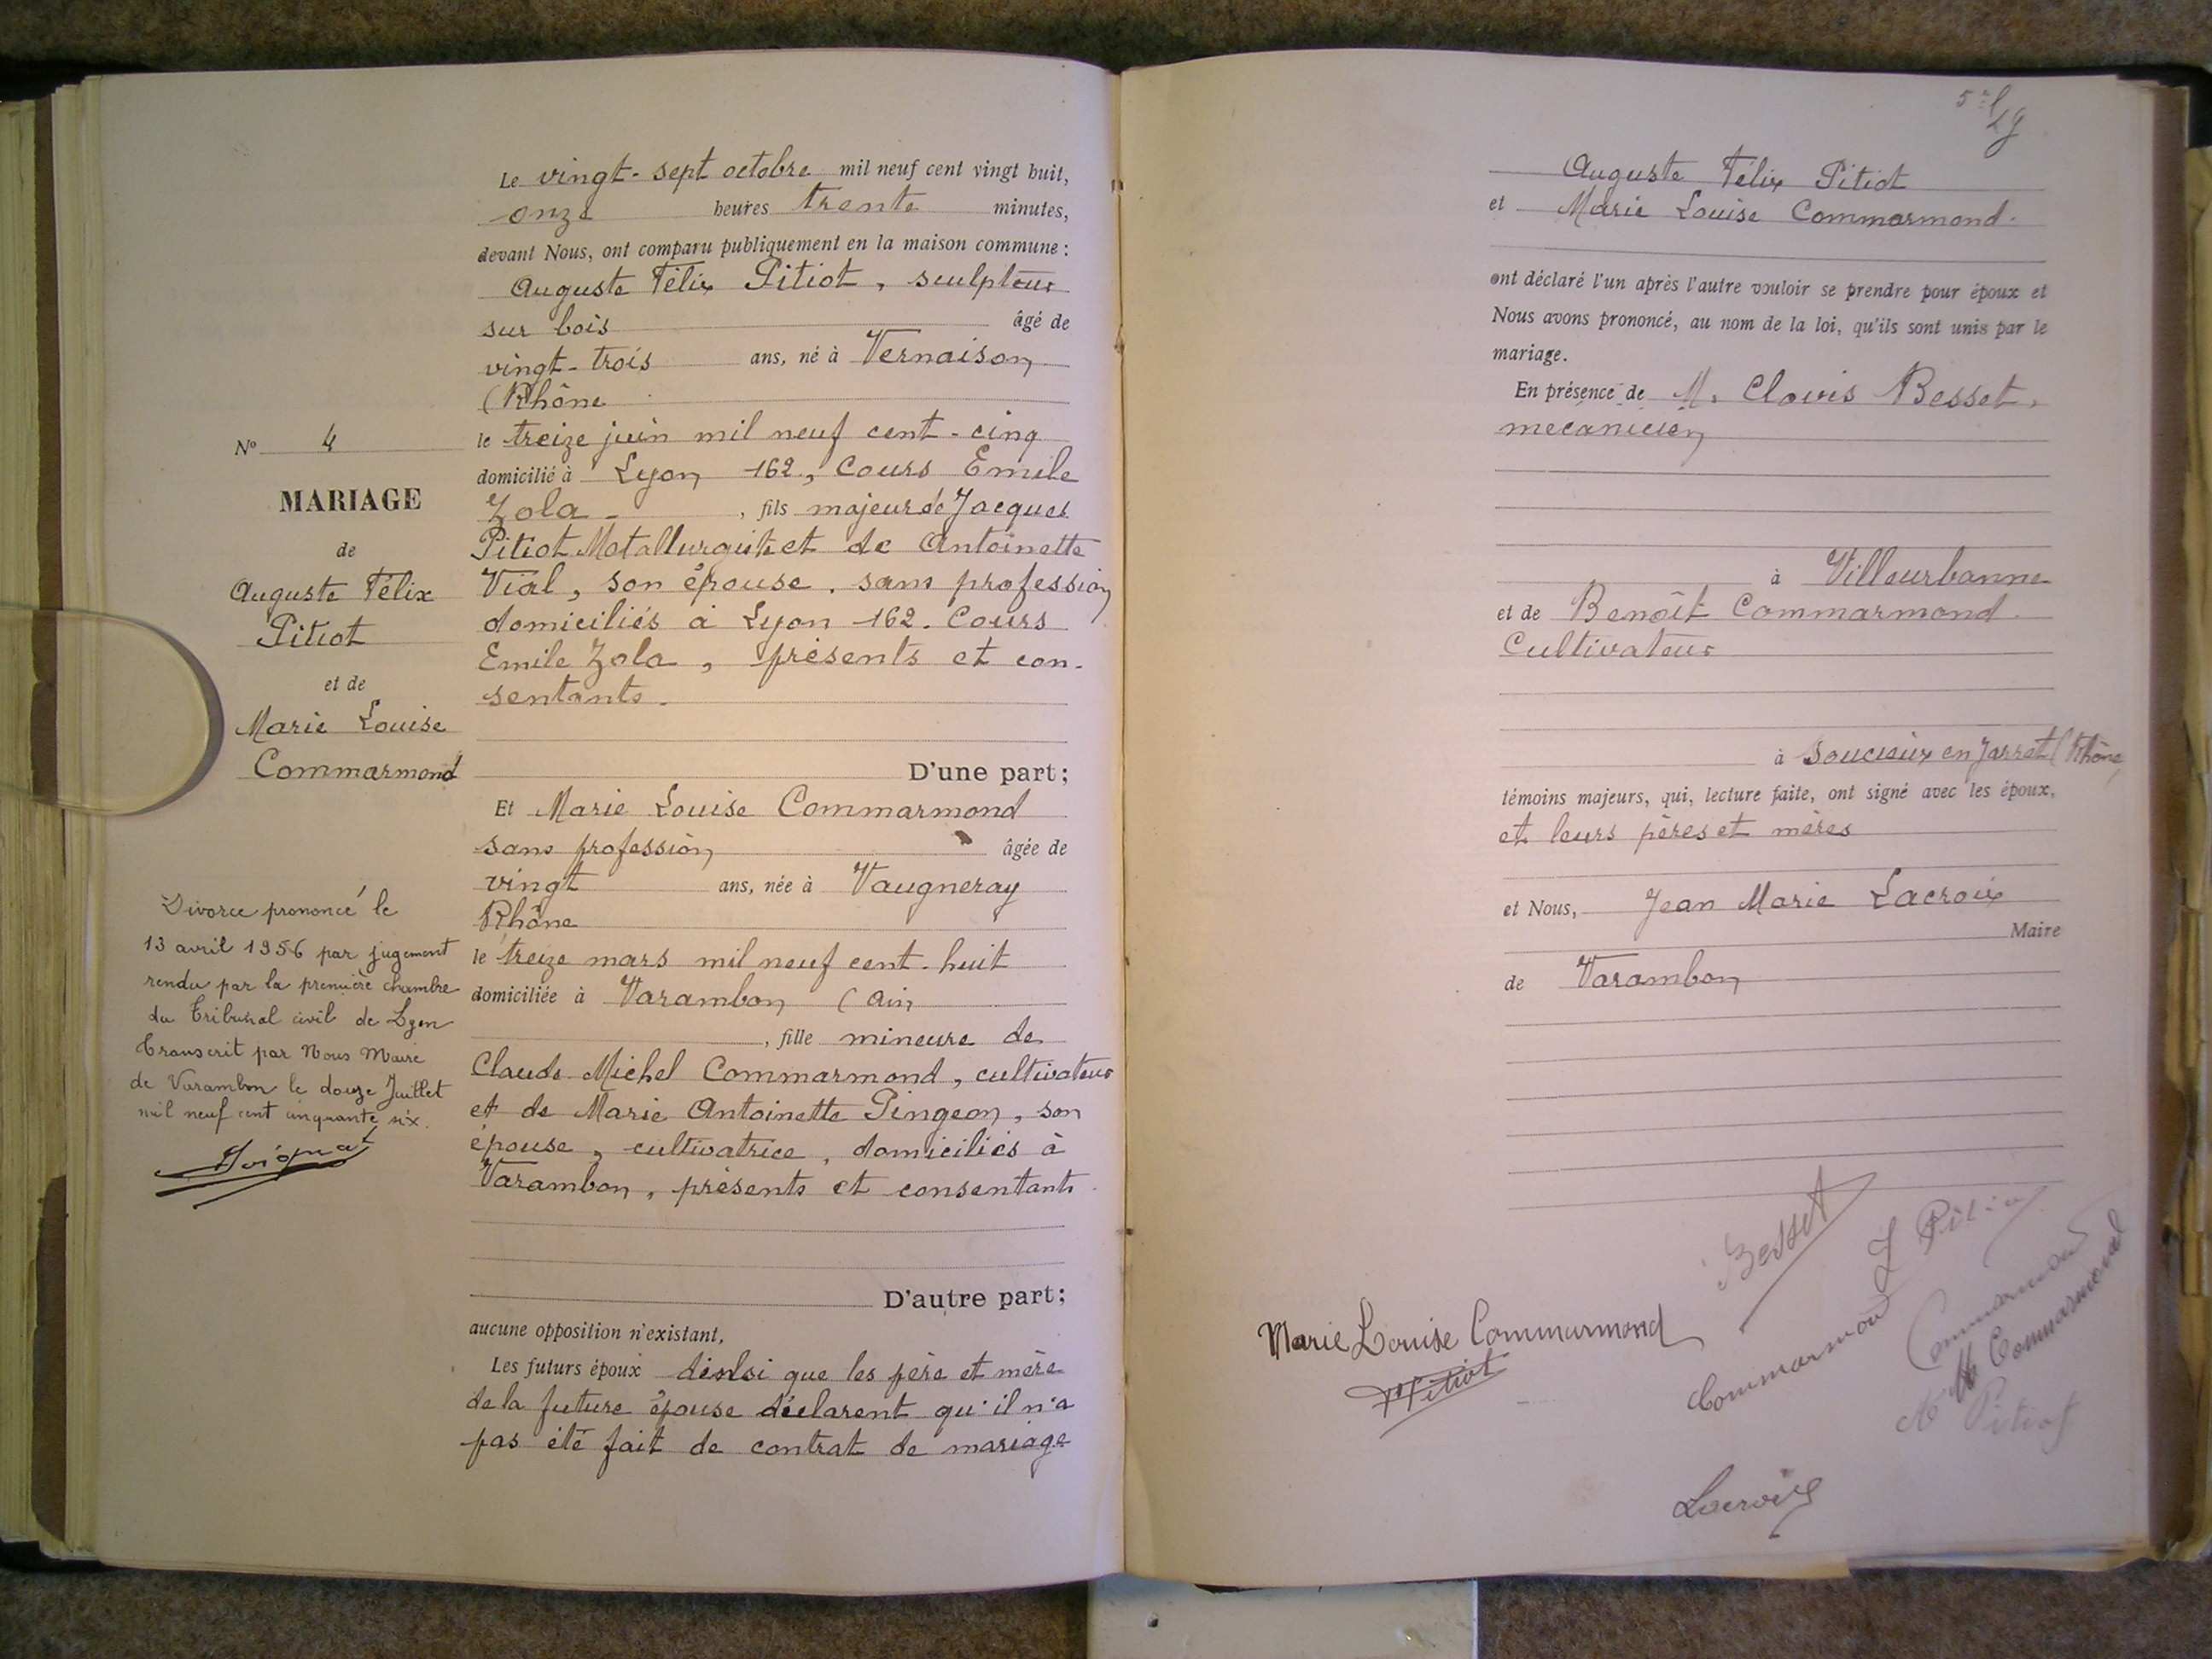 N° 4
MARIAGE
de
Auguste Félix
Pitiot
et de
Marie Louise
Commarmond
Divorce prononcé le
13 avril 1956 par jugement
rendu par la première chambre
du Tribunal civil de Lyon
Transcrit par Nous Maire
de Varambon le douze Juillet
mil neuf cent cinquante six.
Le vingt-sept octobre mil neuf cent vingt huit,
onze heures trente minutes,
devant Nous, ont comparu publiquement en la maison commune :
Auguste Félix Pitiot, sculpteur
sur bois âgé de
vingt-trois ans, né à Vernaison
(Rhône
le treize juin mil neuf cent-cinq
domicilié à Lyon 162, Cours Emile
Zola - , fils majeur de Jacques
Pitiot Metallurgiste et de Antoinette
Vial, son épouse. sans profession
domiciliés à Lyon 162. Cours
Emile Zola, présents et con-
sentants.
D'une part ;
Et Marie Louise Commarmond
sans profession âgée de
vingt ans, née à Vaugneray
Rhône
le treize mars mil neuf cent-huit
domiciliée à Varambon (Ain
, fille mineure de
Claude Michel Commarmond, cultivateur
et de Marie Antoinette Pingeon, son
épouse, cultivatrice, domiciliés à
Varambon, présents et consentants.
D'autre part ;
aucune opposition n'existant,
Les futurs époux ainsi que les père et mère
de la future épouse déclarent qu'il n'a
pas été fait de contrat de mariage
Auguste Félix Pitiot
et Marie Louise Commarmond.
ont déclaré l'un après l'autre vouloir se prendre pour époux et
Nous avons prononcé, au nom de la loi, qu'ils sont unis par le
mariage.
En présence de M. Clovis Besset,
mécanicien
à Villeurbanne
et de Benoît Commarmond
Cultivateur
à Soucieux en Jarret (Rhône
témoins majeurs, qui, lecture faite, ont signé avec les époux,
et leurs pères et mères
et Nous, Jean Marie Lacroix
Maire
de Varambon
Besset
J Pitiot
Marie Louise Commarmond
Commarmond
Commarmond
M Commarmond
Pitiot
Pitiot
Lacroix